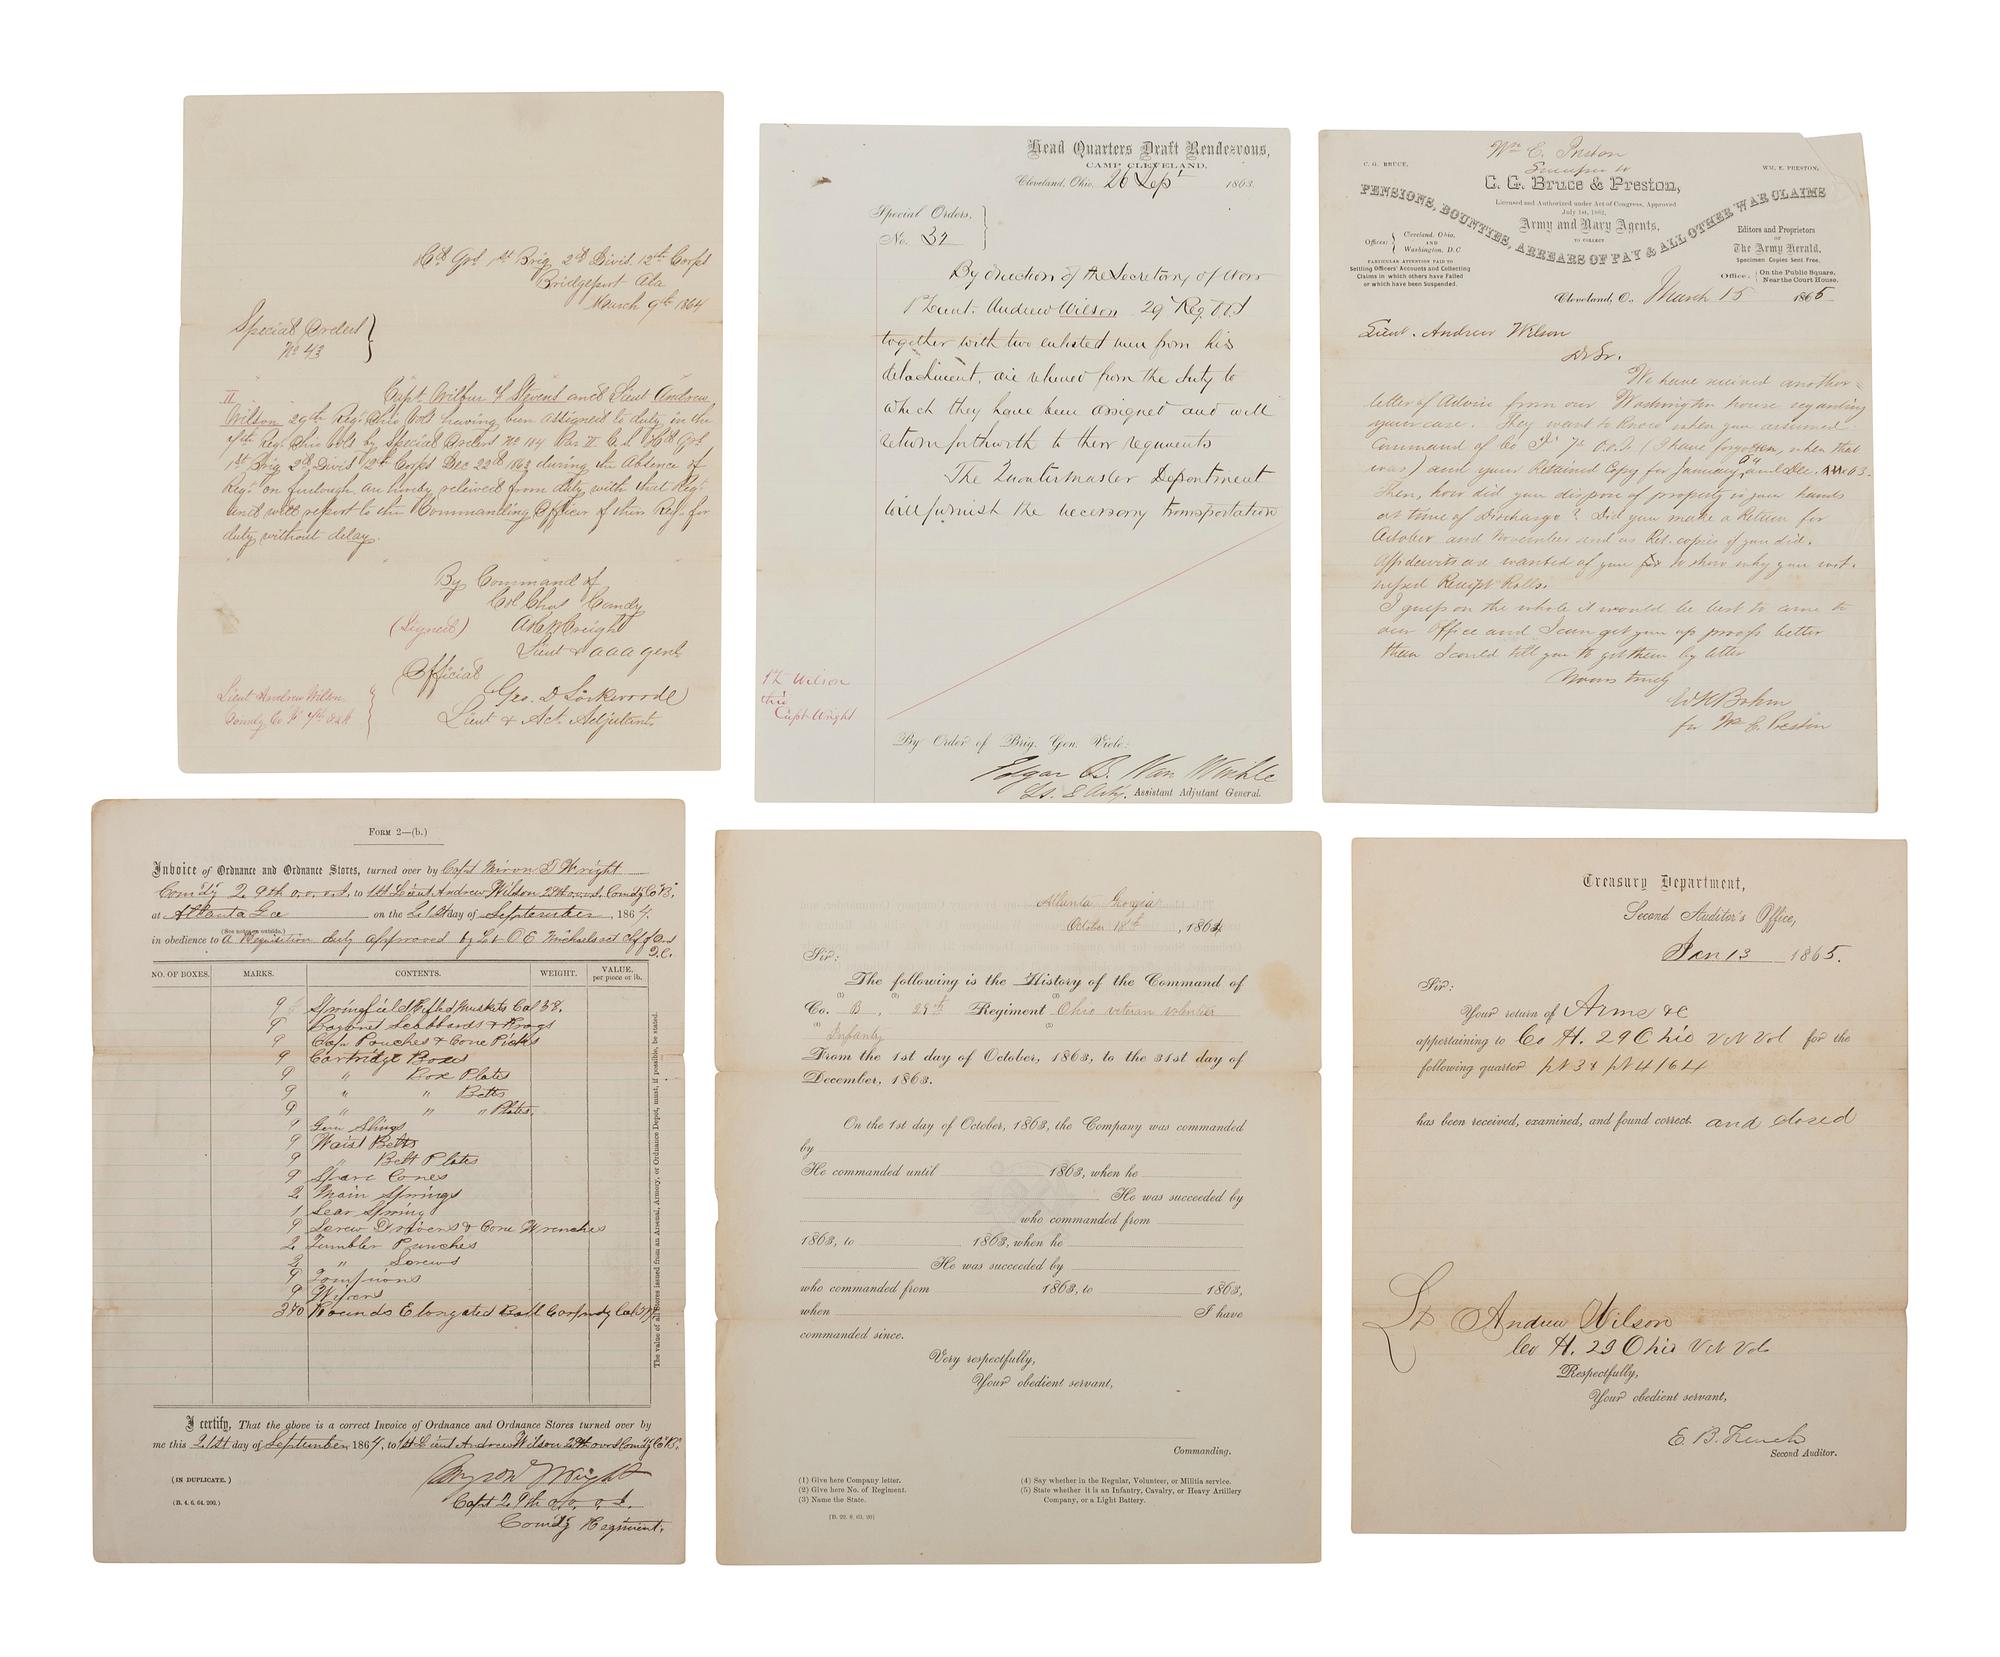 Hd Qrs 1st Brig 2d Divis 12th Corps
Bridgeport Ala
March 9th 1864
Special Orders
No 43
II Capt Wilbur F Stevens and Lieut Andrew
Wilson 29th Reg. Ohio Vols having been assigned to duty in the
7th Reg. Ohio Vols by Special Orders No 184 Par II C.S. Hd Qrs
1st Brig 2d Divis 12th Corps Dec 22d 1863 during the absence of
Regt on furlough are hereby relieved from duty with that Regt
and will report to the Commanding Officer of their Regt for
duty without delay.
By Command of
Col Chas Candy
(Signed) A H W Creight
Lieut & a a a genl
Official
Geo. D Lockwood
Lieut & Act. Adjutant
Lieut Andrew Wilson
Comdg Co
Head Quarters Draft Rendezvous,
CAMP CLEVELAND,
Cleveland, Ohio, 26 Sept 1863.
Special Orders,
No. 37
By direction of the Secretary of War
1st Lieut. Andrew Wilson 29 Reg O.V.I
together with two enlisted men from his
detachment, are relieved from the duty to
which they have been assigned and will
return forthwith to their regiments
The Quartermaster Department
will furnish the necessary transportation
Lt Wilson
thro
Capt Wright
By Order of Brig. Gen. Viele:
Edgar B. Van Winkle
Lt. & Actg. Assistant Adjutant General.
Wm E. Preston
Successor to
C. G. BRUCE, WM. E. PRESTON,
C. G. Bruce & Preston,
PENSIONS, BOUNTIES, ARREARS OF PAY & ALL OTHER WAR CLAIMS
Licensed and Authorized under Act of Congress, Approved
July 1st, 1862,
Army and Navy Agents,
TO COLLECT
Offices: Cleveland, Ohio,
AND
Washington, D.C.
PARTICULAR ATTENTION PAID TO
Settling Officers' Accounts and Collecting
Claims in which others have Failed
or which have been Suspended.
Editors and Proprietors
OF
The Army Herald,
Specimen Copies Sent Free.
Office: On the Public Square,
Near the Court House.
Cleveland, O., March 15 1865
Lieut. Andrew Wilson
Dr Sr.
We have received another
letter of Advice from our Washington house regarding
your case. They want to know when you assumed
Command of Co "F" 7th O.V.I. (I have forgotten, when that
was) and your Retained Copy for January 64 and Dec. 63.
Then, how did you dispose of property in your hands
at time of Discharge? Did you make a Return for
October and November send us Ret. copies if you did.
Affidavits are wanted of you to show why you wit-
nessed Receipt Rolls.
I guess on the whole it would be best to come to
our Office and I can get you up proofs better
than I could tell you to get them by letter
Yours truly
W K Bohm
for Wm E. Preston
FORM 2—(b.)
Invoice of Ordnance and Ordnance Stores, turned over by Capt Miron T Wright
Comdg 29th o.v.v.I. to 1st Lieut Andrew Wilson 29th o.v.v.I. Comdg Co "B",
at Atlanta Ga on the 21st day of September, 1864,
(See notes on outside.)
in obedience to a Requisition duly approved by Lt O E
NO. OF BOXES. MARKS. CONTENTS. WEIGHT. VALUE, per piece or lb.
9 Springfield Rifled Muskets Cal 58,
9 Bayonet Scabbards & Frogs
9 Cap Pouches & Cone Picks
9 Cartridge Boxes
9 " Box Plates
9 " " Belts
9 " " " Plates,
9 Gun Slings
9 Waist Belts
9 " Belt Plates
9 Spare Cones
2 Main Springs
1 Sear Spring
9 Screw Drivers & Cone Wrenches
2 Tumbler Punches
2 " Screws
9 Tompions
9 Wipers
370 Rounds Elongated Ball
The value of all stores issued from an Arsenal, Armory, or Ordnance Depot, must, if possible, be stated.
I certify, That the above is a correct Invoice of Ordnance and Ordnance Stores turned over by
me this 21st day of September 1864, to 1st Lieut Andrew Wilson 29th ovvI Comdg Co "B",
(IN DUPLICATE.)
Myron T Wright
(B. 4, 6, 64, 200.)
Capt 29th o, v, v, I,
Comdg Regiment.
Atlanta Georgia
October 18th, 1864
Sir:
The following is the History of the Command of
(1) (2) (3)
Co. B, 29th Regiment Ohio veteran volunteer
(4) (5)
Infantry
From the 1st day of October, 1863, to the 31st day of
December, 1863.
On the 1st day of October, 1863, the Company was commanded
by
He commanded until 1863, when he
He was succeeded by
who commanded from
1863, to 1863, when he
He was succeeded by
who commanded from 1863, to 1863,
when I have
commanded since.
Very respectfully,
Your obedient servant,
Commanding.
(1) Give here Company letter.
(2) Give here No. of Regiment.
(3) Name the State.
(4) Say whether in the Regular, Volunteer, or Militia service.
(5) State whether it is an Infantry, Cavalry, or Heavy Artillery
Company, or a Light Battery.
[B. 22, 8, 63, 20]
Treasury Department,
Second Auditor's Office,
Jan 13 1865.
Sir:
Your return of Arms &c
appertaining to Co H. 29 Ohio Vet Vol for the
following quarter pt 3 & pt 4/64
has been received, examined, and found correct and closed
Lt Andrew Wilson
Co H. 29 Ohio Vet Vols
Respectfully,
Your obedient servant,
E. B. French
Second Auditor.